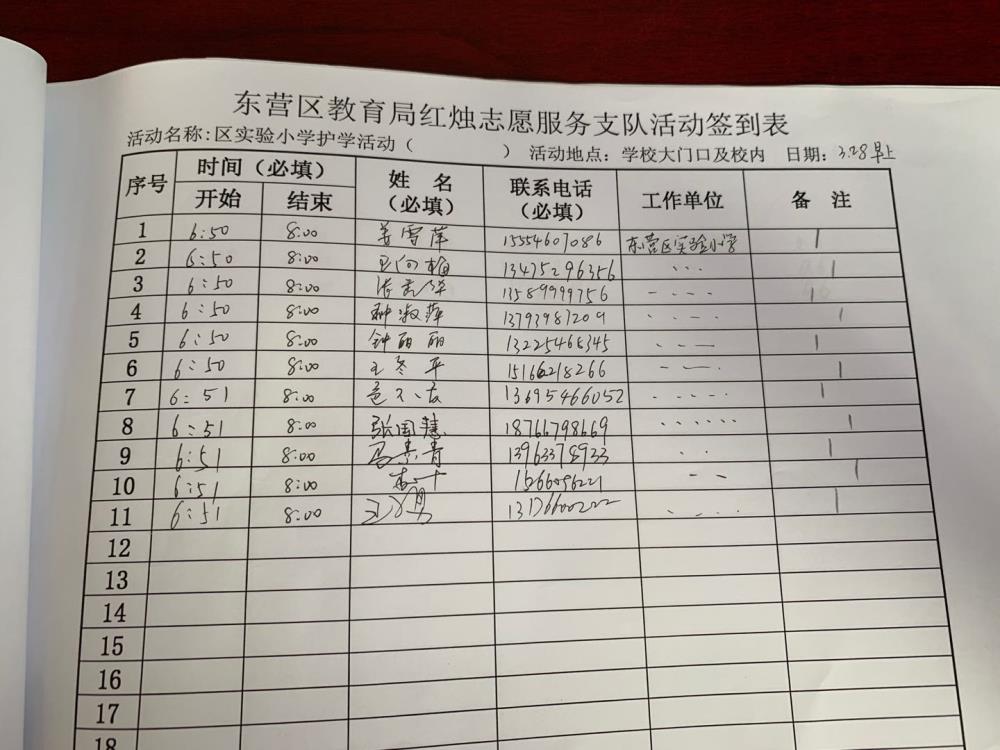 东营区教育局红烛志愿服务支队活动签到表
活动名称:区实验小学护学活动( ) 活动地点:学校大门口及校内 日期:3.28早上
序号 时间(必填) 姓名(必填) 联系电话(必填) 工作单位 备注
开始 结束
1 6:50 8:00 姜雪萍 15554607086 东营区实验小学 1
2 6:50 8:00 13475296356 1
3 6:50 8:00 13589999756 1
4 6:50 8:00 种淑萍 13793987209 1
5 6:50 8:00 钟丽丽 13225468345 1
6 6:50 8:00 王冬平 15166218266 1
7 6:51 8:00 13695466052 1
8 6:51 8:00 张国慧 18766798669 1
9 6:51 8:00 1
10 6:51 8:00 1
11 6:51 8:00 1
12
13
14
15
16
17
18